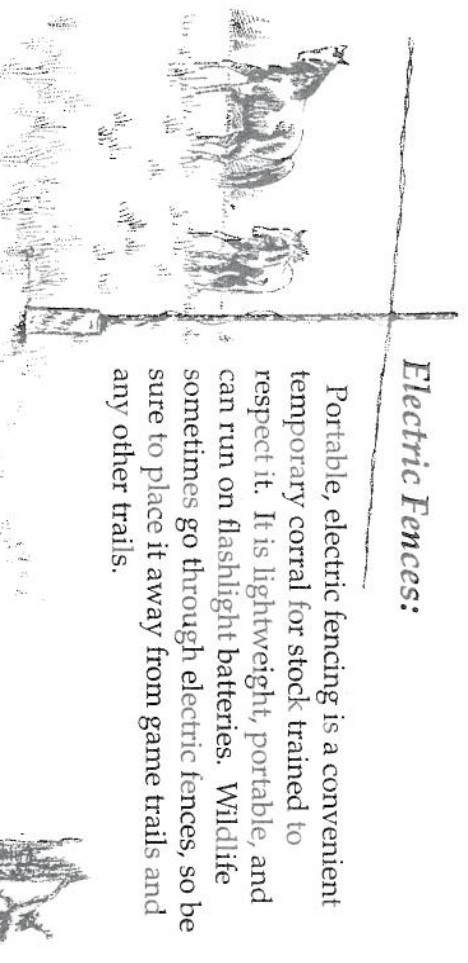 Electric Fences:
Portable, electric fencing is a convenient
temporary corral for stock trained to
respect it.  It is lightweight, portable, and
can run on flashlight batteries.  Wildlife
sometimes go through electric fences, so be
sure to place it away from game trails and
any other trails.